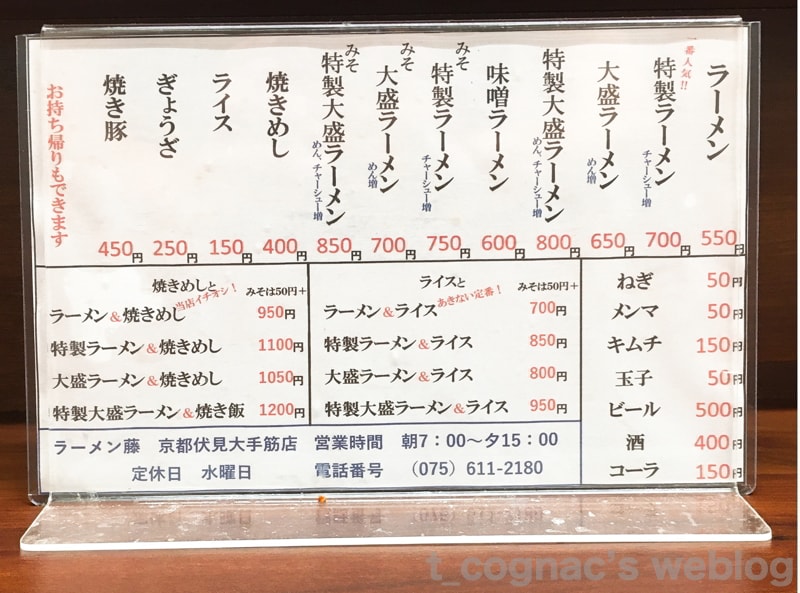 ラーメン 550円
一番人気!!
特製ラーメン チャーシュー増 700円
大盛ラーメン めん増 650円
特製大盛ラーメン めん、チャーシュー増 800円
味噌ラーメン 600円
みそ
特製ラーメン チャーシュー増 750円
みそ
大盛ラーメン めん増 700円
みそ
特製大盛ラーメン めん、チャーシュー増 850円
焼きめし 400円
ライス 150円
ぎょうざ 250円
焼き豚 450円
お持ち帰りもできます
焼きめしと みそは50円+
当店イチオシ!
ラーメン&焼きめし 950円
特製ラーメン&焼きめし 1100円
大盛ラーメン&焼きめし 1050円
特製大盛ラーメン&焼き飯 1200円
ライスと みそは50円+
あきない定番!
ラーメン&ライス 700円
特製ラーメン&ライス 850円
大盛ラーメン&ライス 800円
特製大盛ラーメン&ライス 950円
ねぎ 50円
メンマ 50円
キムチ 150円
玉子 50円
ビール 500円
酒 400円
コーラ 150円
ラーメン藤 京都伏見大手筋店 営業時間 朝7:00～夕15:00
定休日 水曜日 電話番号 (075)611-2180
t_cognac's weblog